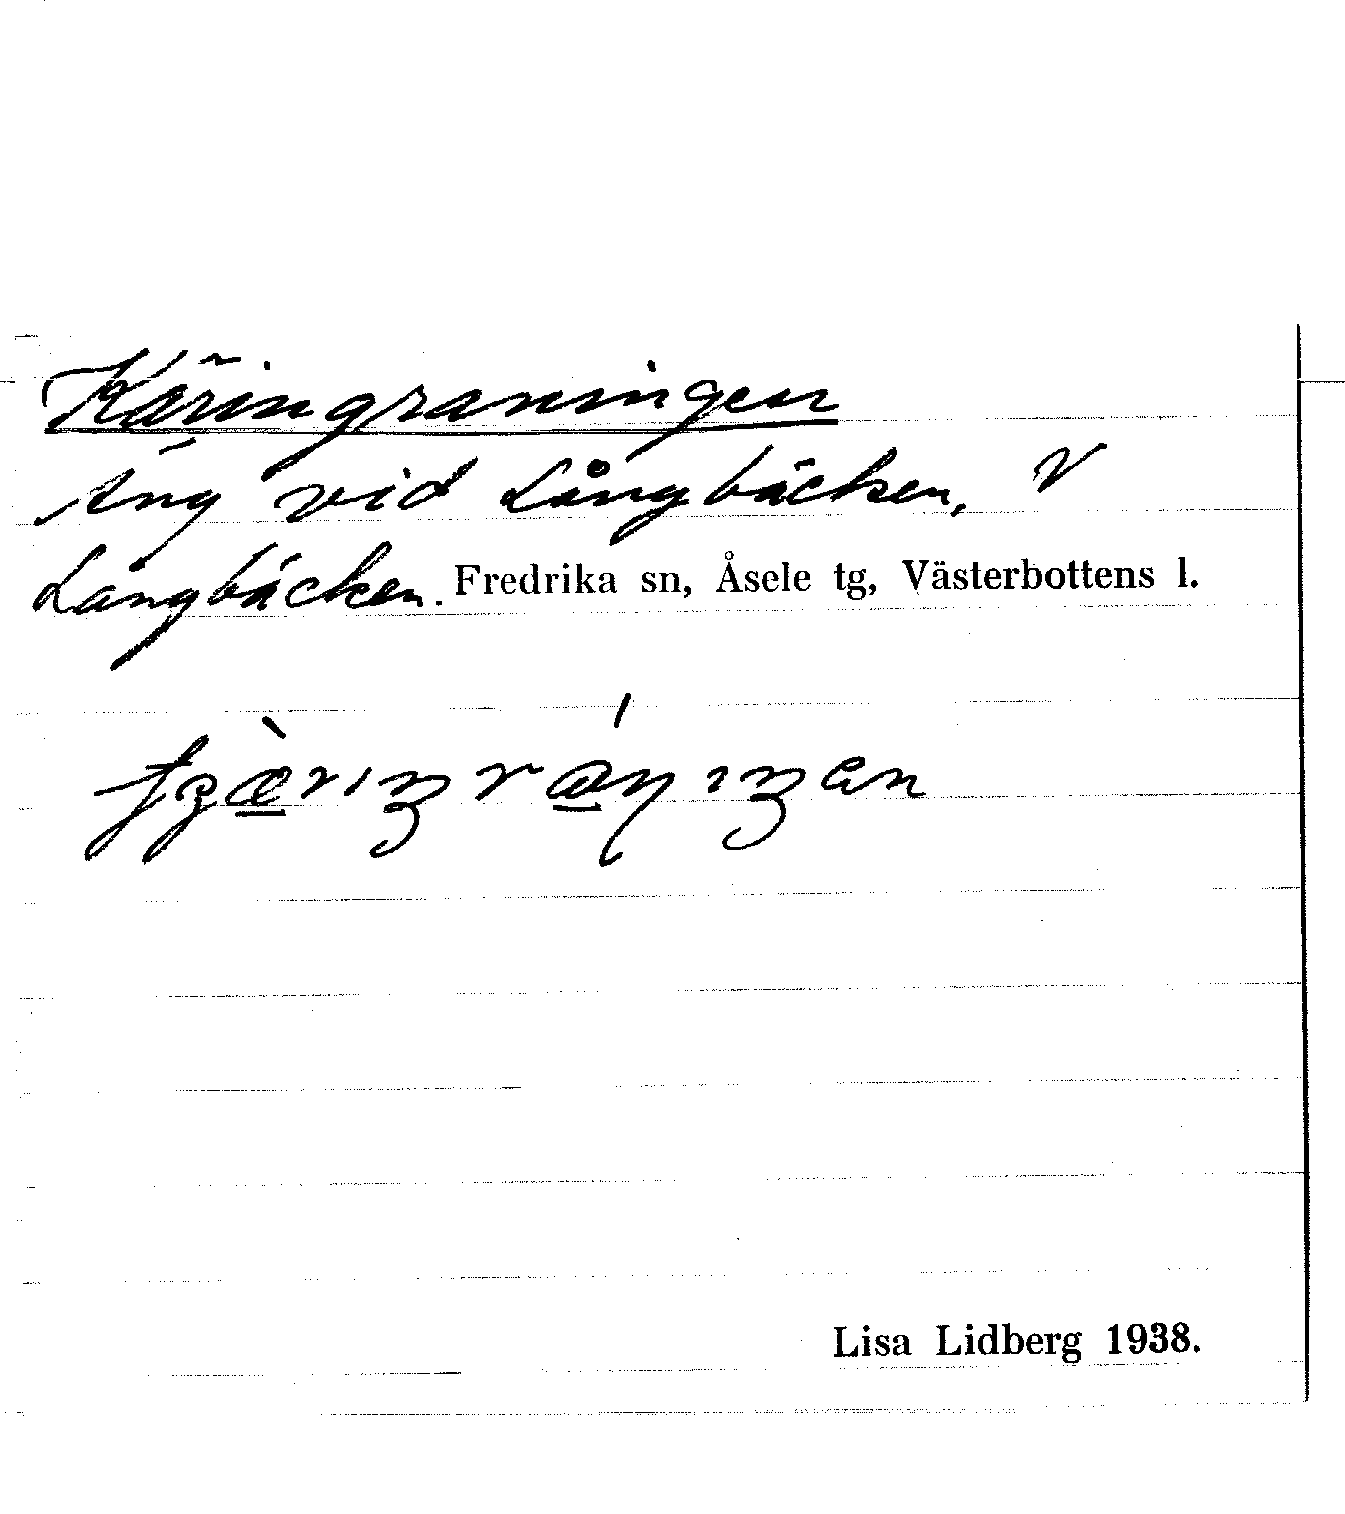 Käringraningen
Äng vid Långbäcken, V
Långbäcken. Fredrika sn, Åsele tg, Västerbottens l.
Lisa Lidberg 1938.